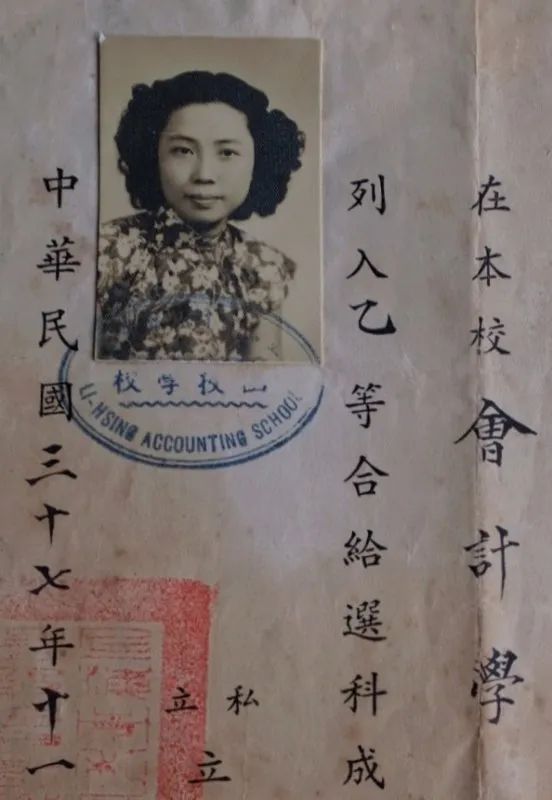 在本校會計學
列入乙等合給選科成
私立
立
中華民國三十七年十一
校學
LI-HSING ACCOUNTING SCHOOL